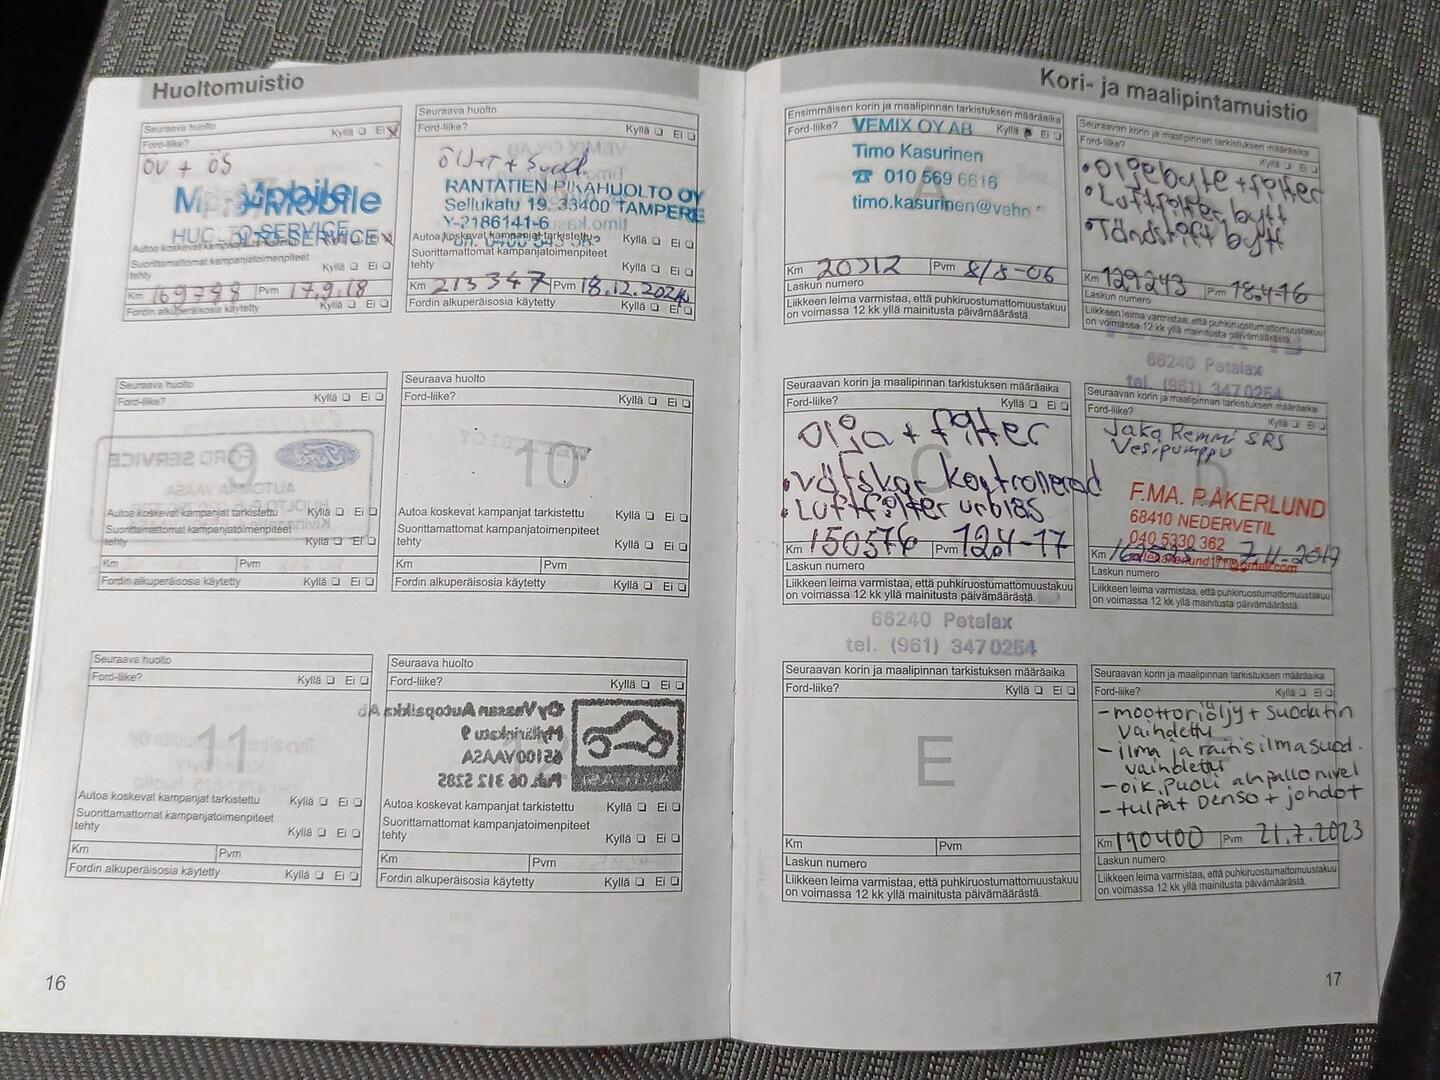 Huoltomuistio
Seuraava huolto
Ford-liike? Kyllä Ei
ÖV + ÖS
Mobile
HUOLTO-SERVICE
Autoa koskevat kampanjat tarkistettu
Suorittamattomat kampanjatoimenpiteet
tehty Kyllä Ei
Km 169788 Pvm 17.9.18
Fordin alkuperäisosia käytetty Kyllä Ei
Seuraava huolto
Ford-liike? Kyllä Ei
öljyt + suod.
RANTATIEN PIKAHUOLTO OY
Sellukatu 19, 33400 TAMPERE
Y-2186141-6
Autoa koskevat kampanjat tarkistettu Kyllä Ei
Suorittamattomat kampanjatoimenpiteet
tehty Kyllä Ei
Km 213347 Pvm 18.12.2024
Fordin alkuperäisosia käytetty Kyllä Ei
Seuraava huolto
Ford-liike? Kyllä Ei
9
FORD SERVICE
Ford
AUTOMAA VAASA
Autoa koskevat kampanjat tarkistettu Kyllä Ei
Suorittamattomat kampanjatoimenpiteet
tehty Kyllä Ei
Km Pvm
Fordin alkuperäisosia käytetty Kyllä Ei
Seuraava huolto
Ford-liike? Kyllä Ei
10
Autoa koskevat kampanjat tarkistettu Kyllä Ei
Suorittamattomat kampanjatoimenpiteet
tehty Kyllä Ei
Km Pvm
Fordin alkuperäisosia käytetty Kyllä Ei
Seuraava huolto
Ford-liike? Kyllä Ei
11
Autoa koskevat kampanjat tarkistettu Kyllä Ei
Suorittamattomat kampanjatoimenpiteet
tehty Kyllä Ei
Km Pvm
Fordin alkuperäisosia käytetty Kyllä Ei
Seuraava huolto
Ford-liike? Kyllä Ei
Oy Vaasan Autopalkka Ab
Myllärinkatu 9
65100 VAASA
Puh. 06 312 5285
Autoa koskevat kampanjat tarkistettu Kyllä Ei
Suorittamattomat kampanjatoimenpiteet
tehty Kyllä Ei
Km Pvm
Fordin alkuperäisosia käytetty Kyllä Ei
16
Kori- ja maalipintamuistio
Ensimmäisen korin ja maalipinnan tarkistuksen määräaika
Ford-liike? Kyllä Ei
VEMIX OY AB
Timo Kasurinen
☎ 010 569 6616
timo.kasurinen@veho
Km 20312 Pvm 8/8-06
Laskun numero
Liikkeen leima varmistaa, että puhkiruostumattomuustakuu
on voimassa 12 kk yllä mainitusta päivämäärästä.
Seuraavan korin ja maalipinnan tarkistuksen määräaika
Ford-liike? Kyllä Ei
• Oljebyte + filter
• Luftfilter bytt
• Tändstift bytt
Km 129243 Pvm 18.4-16
Laskun numero
Liikkeen leima varmistaa, että puhkiruostumattomuustakuu
on voimassa 12 kk yllä mainitusta päivämäärästä.
66240 Petalax
tel. (961) 3470254
Seuraavan korin ja maalipinnan tarkistuksen määräaika
Ford-liike? Kyllä Ei
C
olja + filter
• vätskor kontrollerad
• Luftfilter urblås
Km 150576 Pvm 12.4-17
Laskun numero
Liikkeen leima varmistaa, että puhkiruostumattomuustakuu
on voimassa 12 kk yllä mainitusta päivämäärästä.
66240 Petalax
tel. (961) 3470254
Seuraavan korin ja maalipinnan tarkistuksen määräaika
Ford-liike? Kyllä Ei
Jako Remmi SRS
Vesipumppu
F.MA. P.AKERLUND
68410 NEDERVETIL
040 5330 362
Km Pvm 7.11-2019
Laskun numero
Liikkeen leima varmistaa, että puhkiruostumattomuustakuu
on voimassa 12 kk yllä mainitusta päivämäärästä.
Seuraavan korin ja maalipinnan tarkistuksen määräaika
Ford-liike? Kyllä Ei
E
Km Pvm
Laskun numero
Liikkeen leima varmistaa, että puhkiruostumattomuustakuu
on voimassa 12 kk yllä mainitusta päivämäärästä.
Seuraavan korin ja maalipinnan tarkistuksen määräaika
Ford-liike? Kyllä Ei
- moottoriöljy + suodatin
vaihdettu
- ilma ja raitisilmasuod.
vaihdettu
- oik. puoli alapallonivel
- tulpat Denso + johdot
Km 190400 Pvm 21.7.2023
Laskun numero
Liikkeen leima varmistaa, että puhkiruostumattomuustakuu
on voimassa 12 kk yllä mainitusta päivämäärästä.
17